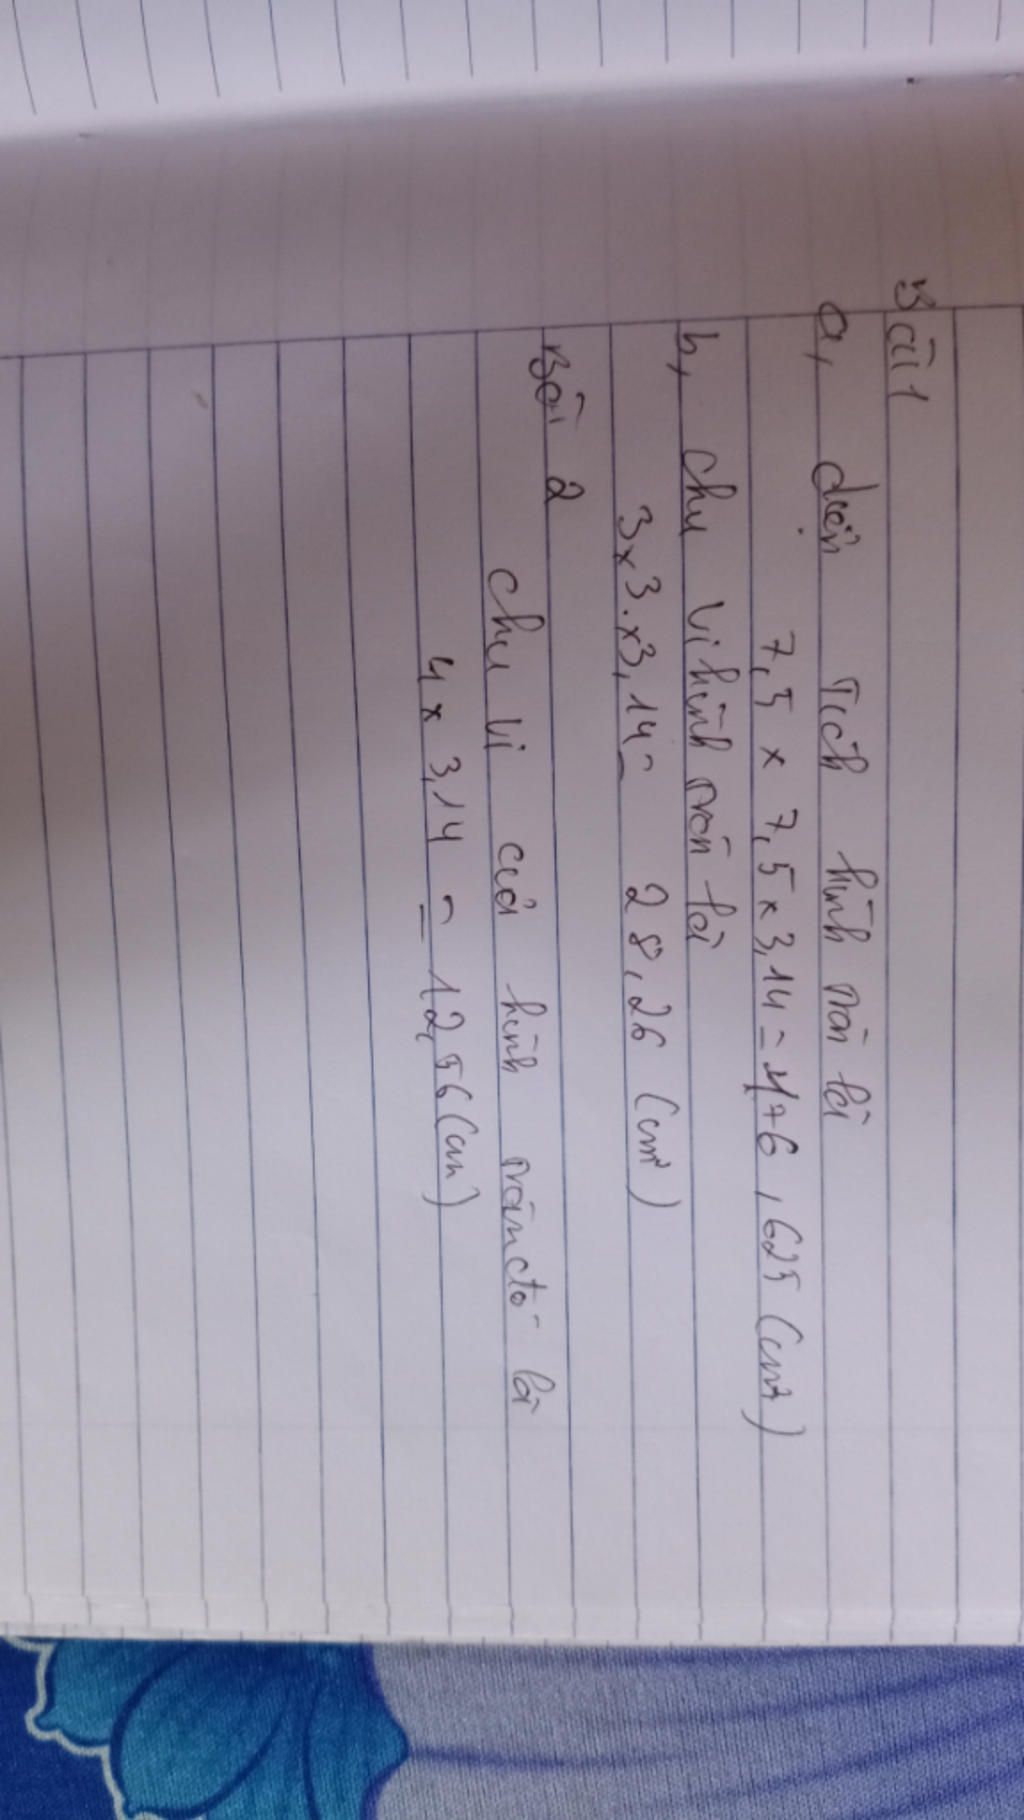 Bài 1
a, diện Tích hình tròn là
7,5 x 7,5 x 3,14 = 176,625 (cm²)
b, chu vi hình tròn là
3 x 3 x 3,14 = 28,26 (cm²)
Bài 2
chu vi của hình tròn to là
4 x 3,14 = 12,56 (cm)